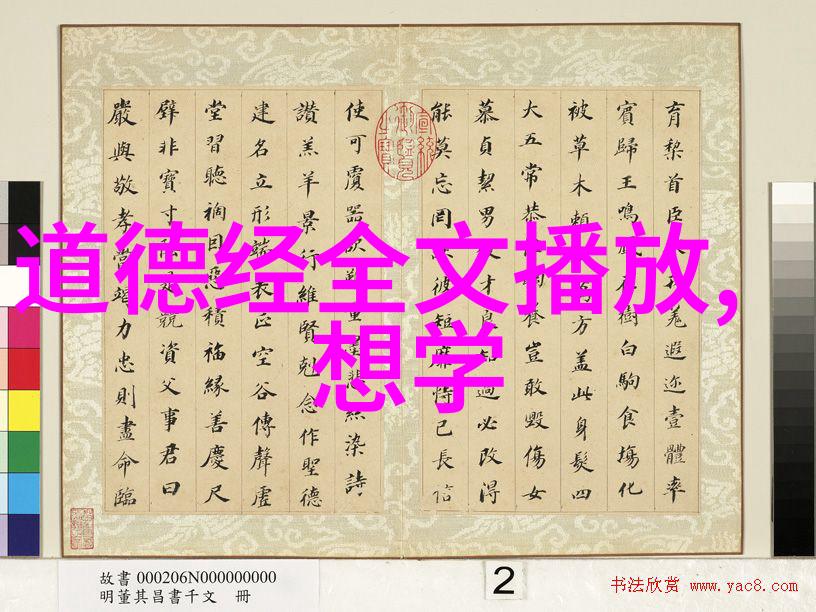 育黎首臣羌遐迩壹體率
賓歸王鳴在樹白駒食場化
被草木賴方蓋此身髮四
大五常恭養豈敢毀傷女
慕貞絜男才良知過必改得
能莫忘罔彼短靡恃己長信
使可覆器欲難量墨悲絲染詩
讚羔羊景行維賢剋念作聖德
建名立形端表正空谷傳聲虛
堂習聽禍因惡積福緣善慶尺
璧非寶寸陰是競資父事君曰
嚴與敬孝當竭力忠則盡命臨
道德经全文播放,
想学
故書 000206N000000000
明董其昌書千文 冊
2
书法欣赏 www.yac8.com